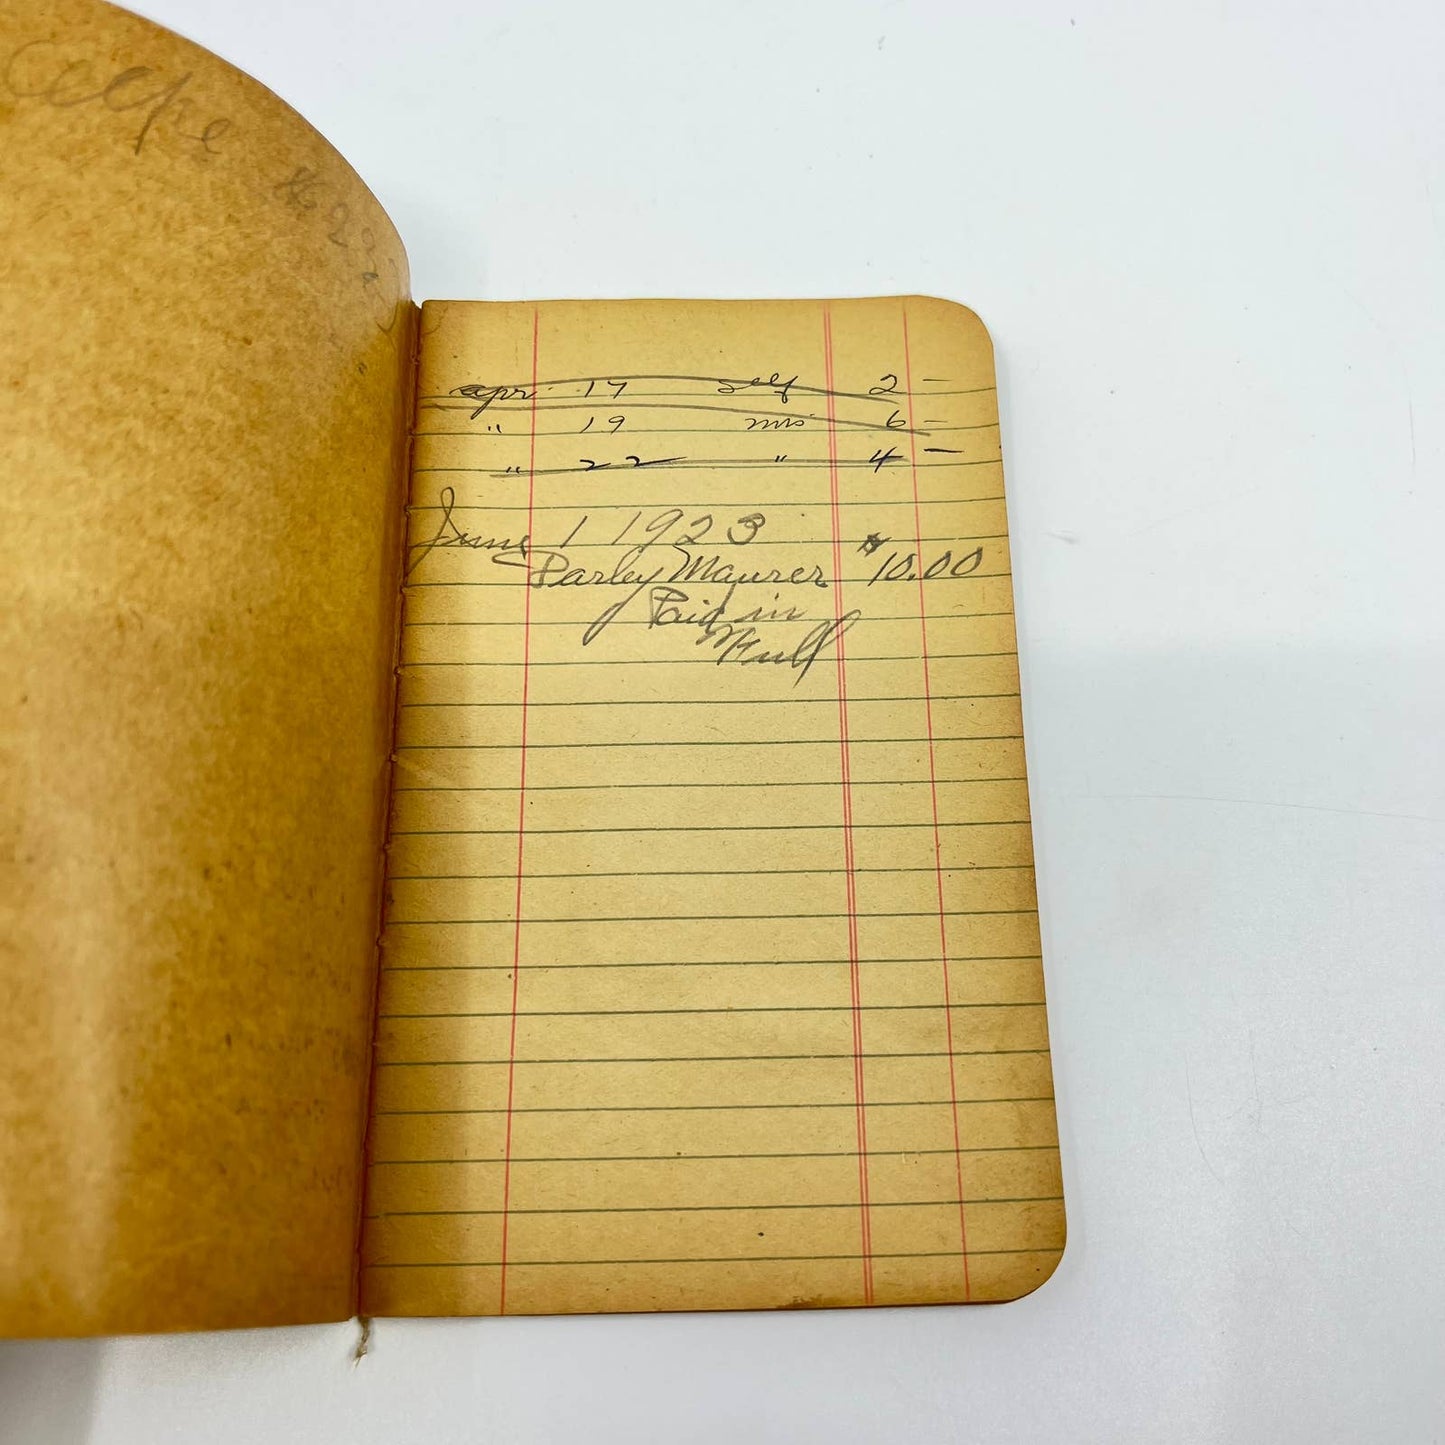 apr. 17 self 2 –
" 19 mrs 6 –
" 22 " 4 –
June 1 1923
Parley Maurer $10.00
Paid in
Full